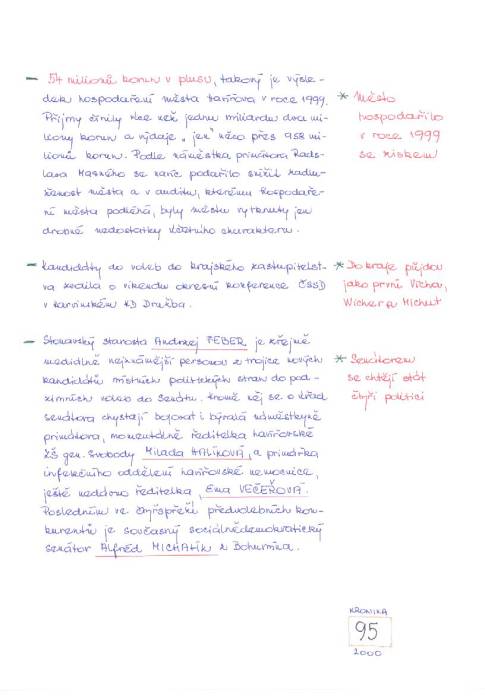 - 54 milionů korun v plusu, takový je výsle-
dek hospodaření města Havířova v roce 1999.
Příjmy činily více než jednu miliardu dva mi-
liony korun a výdaje „jen" něco přes 958 mi-
lionů korun. Podle náměstka primátora Rado-
slava Masného se navíc podařilo snížit zadlu-
ženost města a v auditu, kterému hospodaře-
ní města podléhá, byly městu vytknuty jen
drobné nedostatky účetního charakteru.
* Město
hospodařilo
v roce 1999
se ziskem
- Kandidáty do voleb do krajského zastupitelst-
va zvolila o víkendu okresní konference ČSSD
v karvinském KD Družba.
* Do kraje půjdou
jako první Vícha,
Wicher a Michut
- Stonavský starosta Andrzej FEBER je zřejmě
mediálně nejznámější personou z trojice nových
kandidátů místních politických stran do pod-
zimních voleb do Senátu. Kromě něj se o křad
senátora chystají bojovat i bývalá náměstkyně
primátora, momentálně ředitelka havířovské
ZŠ gen. Svobody Milada HALÍKOVÁ, a primářka
infekčního oddělení havířovské nemocnice,
ještě nedávno ředitelka, Ema VEČEŘOVÁ.
Posledním ve čtyřspřeží předvolebních kon-
kurentů je současný sociálnědemokratický
senátor Alfréd MICHALÍK z Bohumína.
* Senátorem
se chtějí stát
čtyři politici
KRONIKA
95
2000